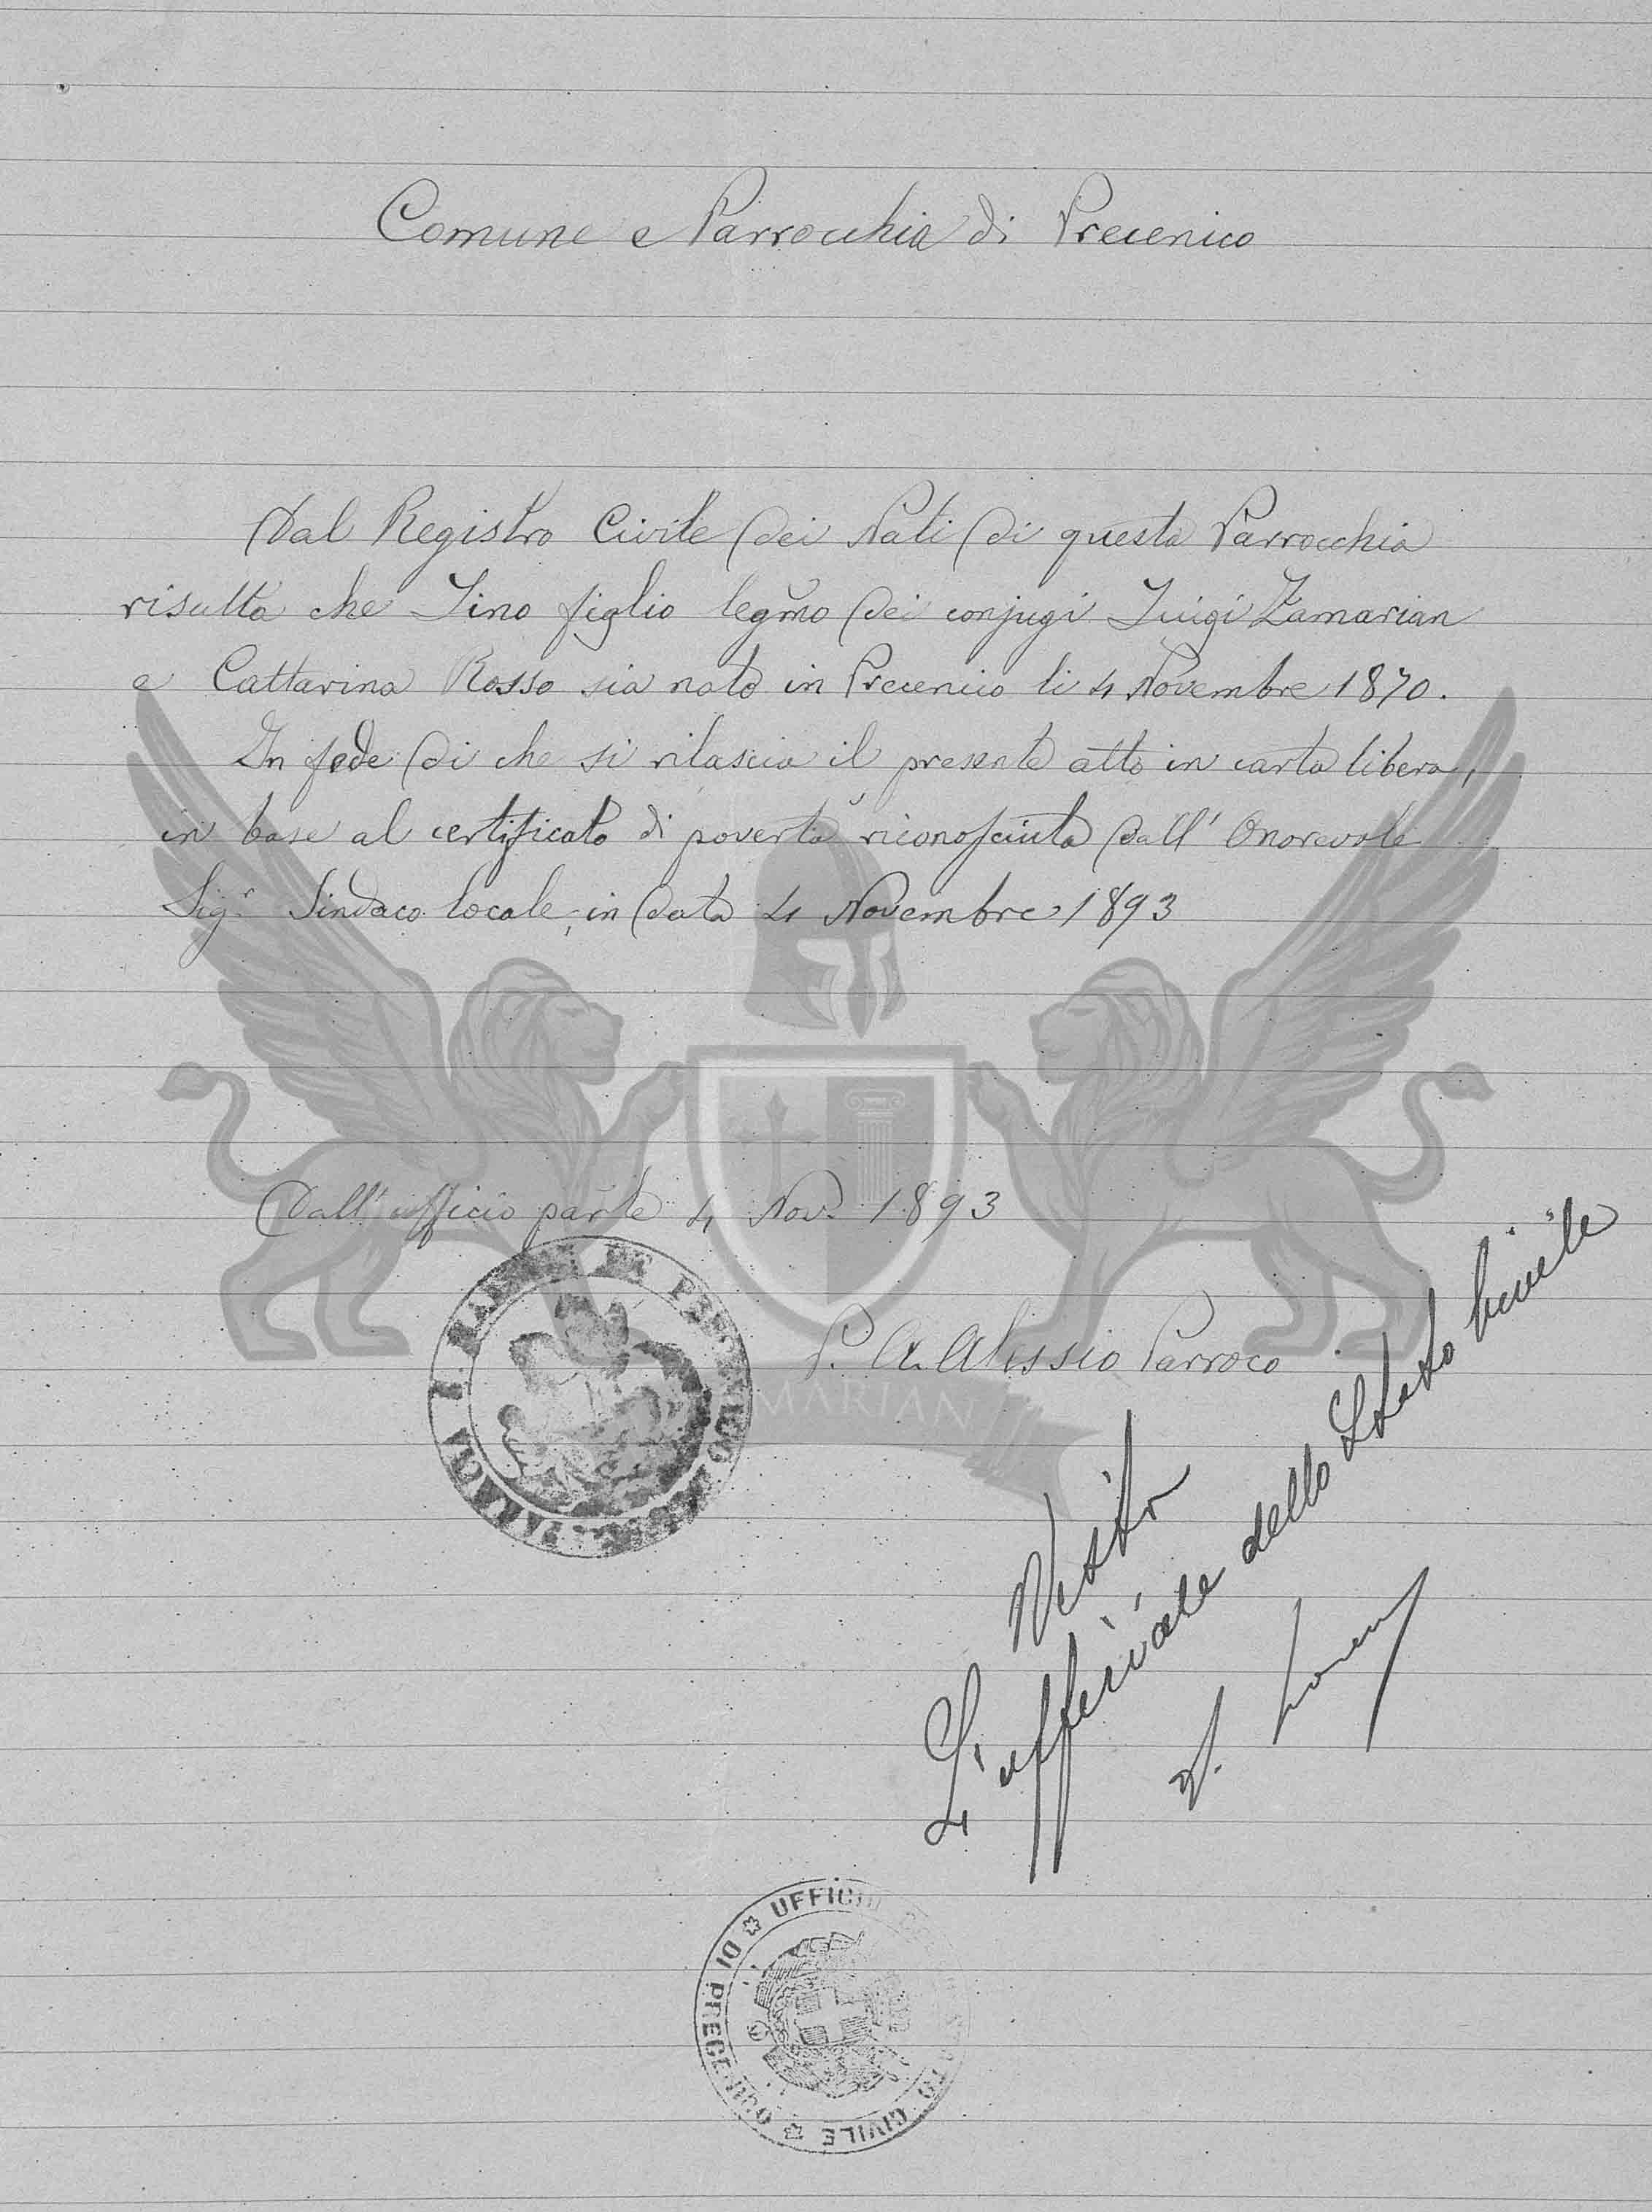 Comune e Parrocchia di Precenico
Dal Registro Civile dei Nati di questa Parrocchia
risulta che Lino figlio legmo dei conjugi Luigi Zamarian
e Cattarina Rosso sia nato in Precenico li 4 Novembre 1870.
In fede di che si rilascia il presente atto in carta libera,
in base al certificato di povertà riconosciuta dall' Onorevole
Sigr Sindaco locale, in data 4 Novembre 1893
Dall' ufficio parle 4 Nov. 1893
P. A. Alessio Parroco
MARIAN
Visto
L'ufficiale dello Stato Civile
UFFICIO CIVILE DI PRECENICO